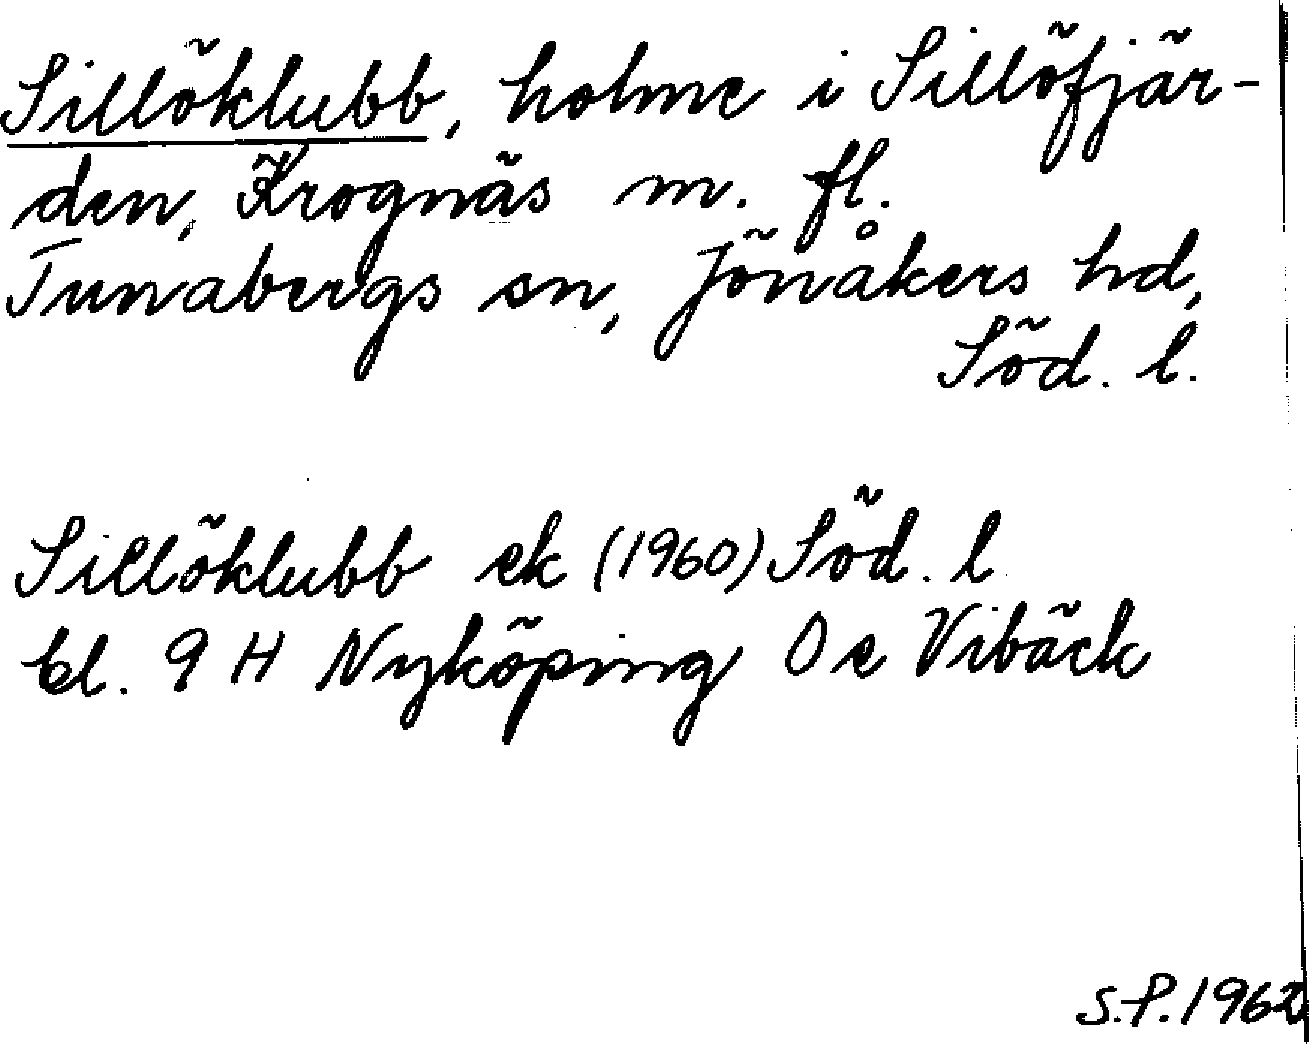 Sillöklubb, holme i Sillöfjär-
den, Krognäs m. fl.
Tunabergs sn, Jönåkers hd,
Söd. l.
Sillöklubb ek (1960) Söd. l
bl. 9 H Nyköping Oe Vibäck
S.P. 1962